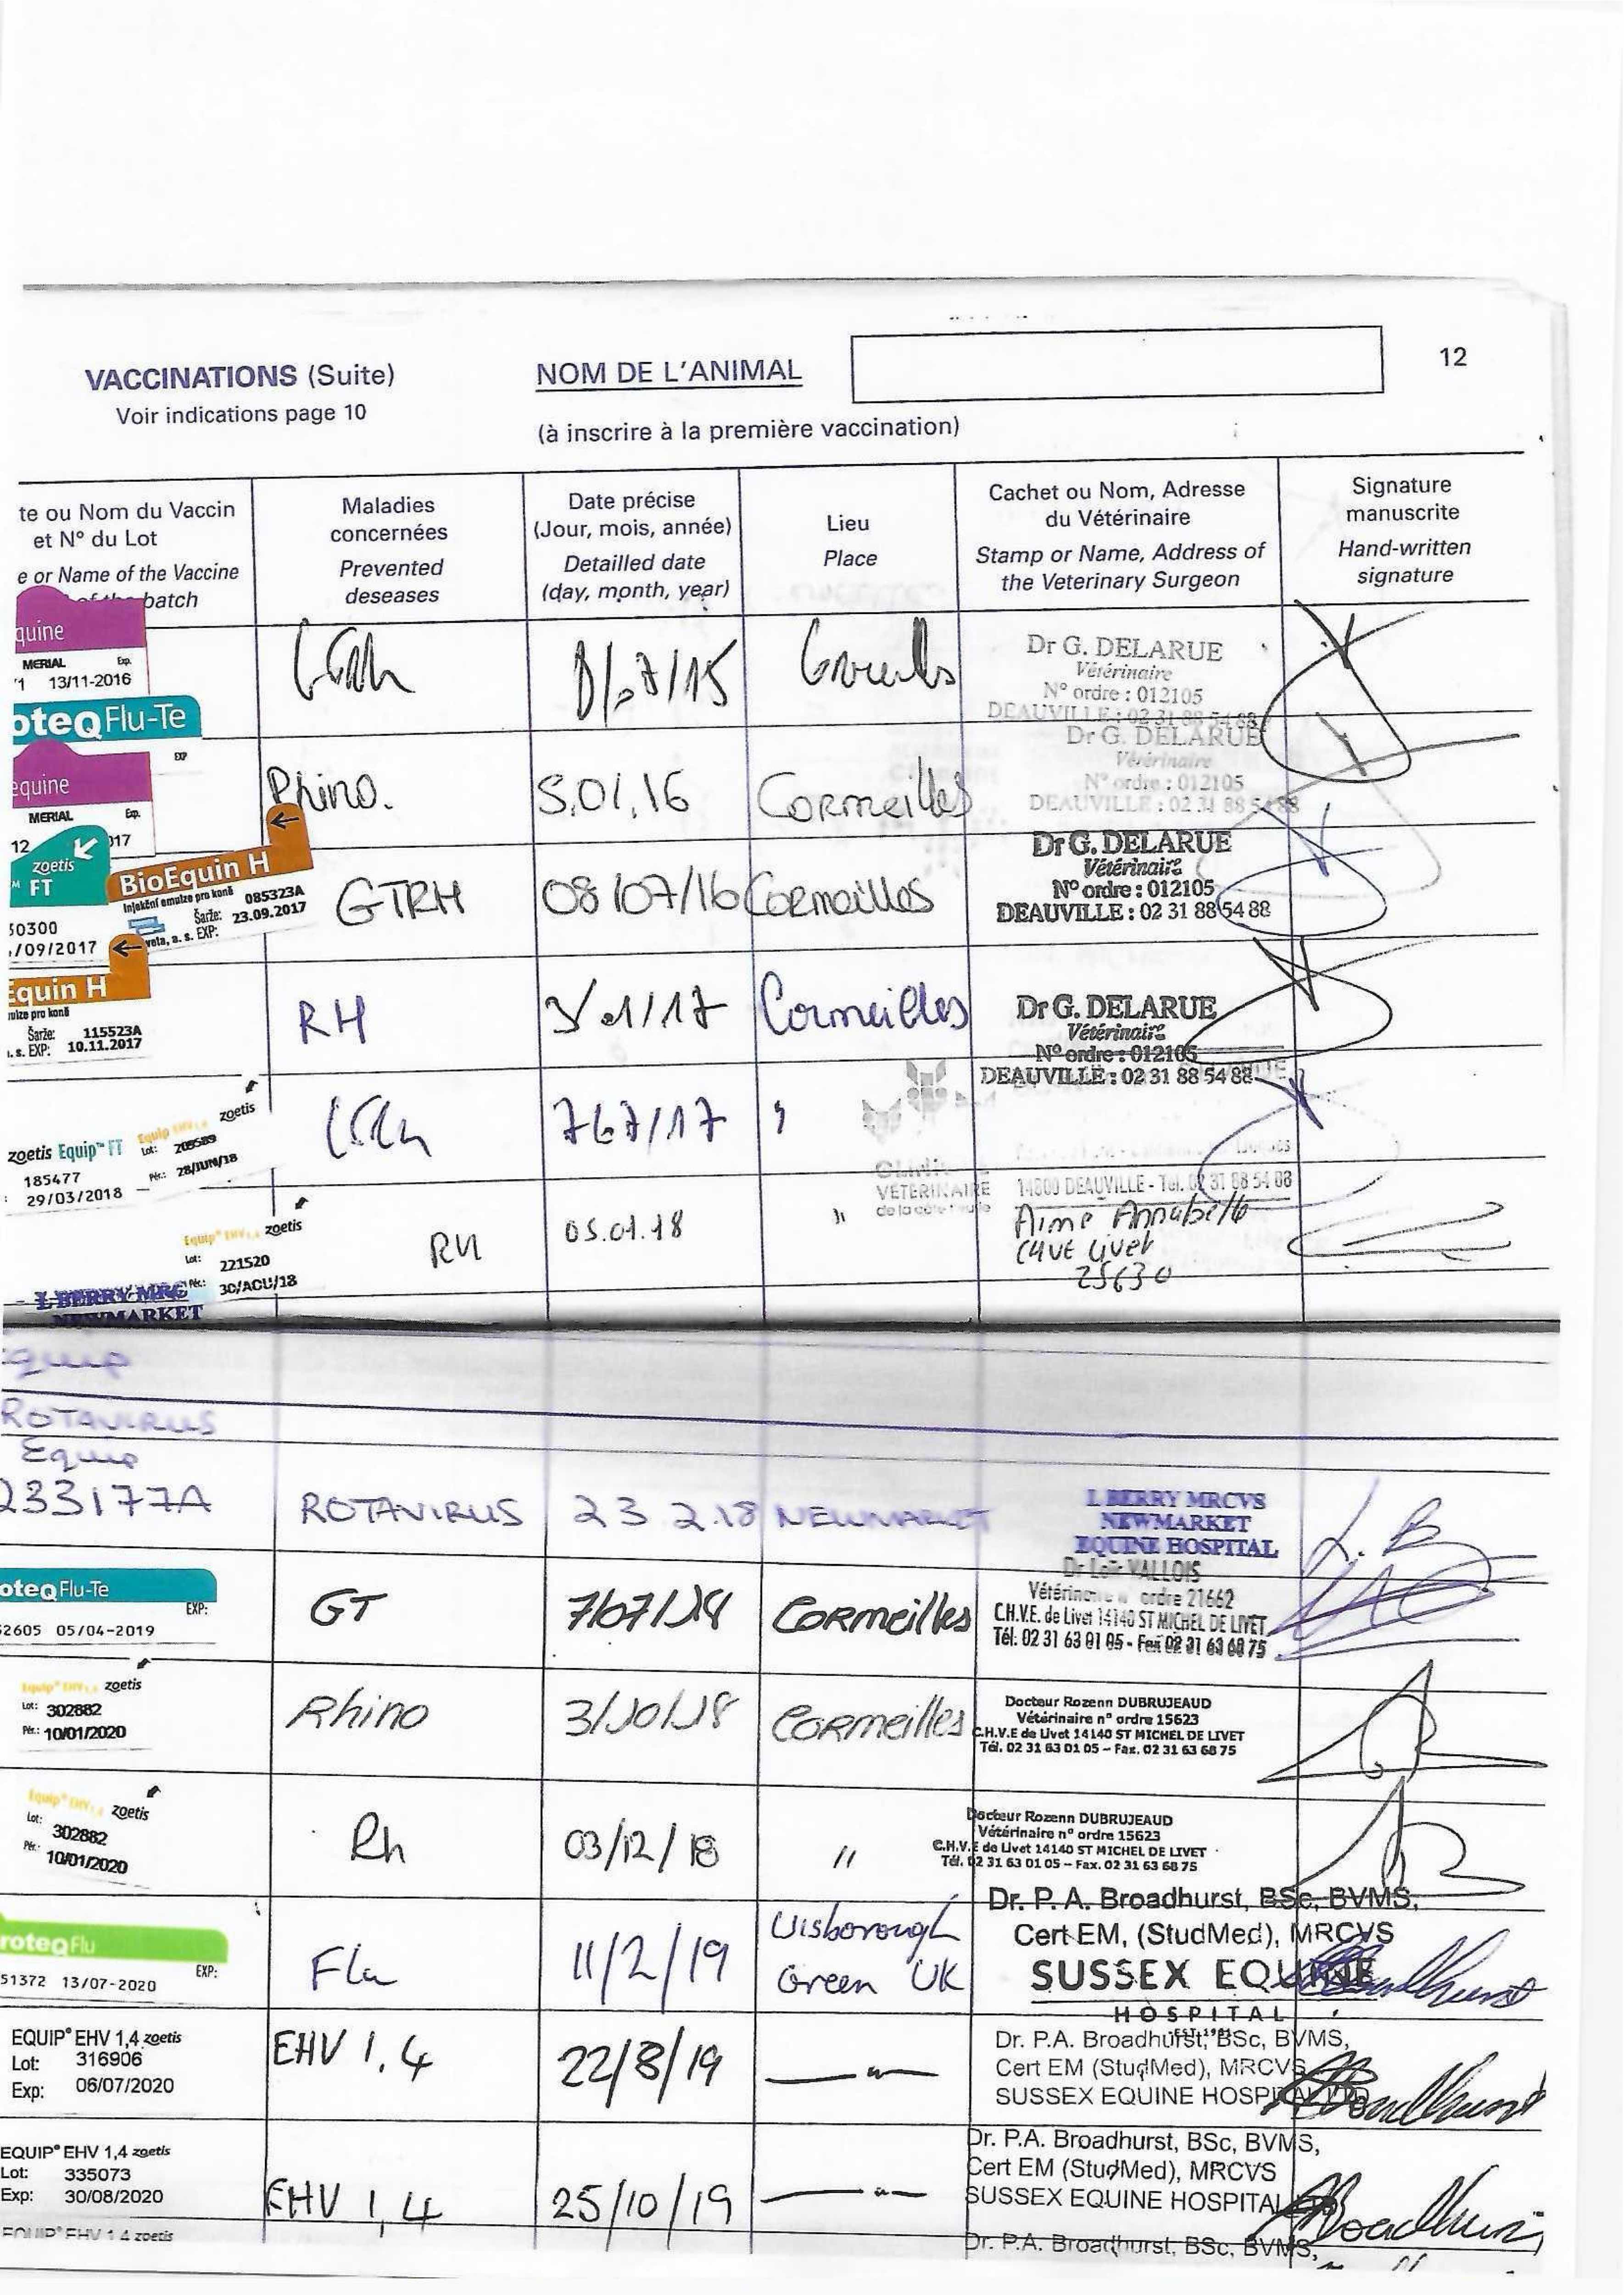 VACCINATIONS (Suite)
Voir indications page 10
NOM DE L'ANIMAL
(à inscrire à la première vaccination)
12
te ou Nom du Vaccin
et N° du Lot
e or Name of the Vaccine
of the batch
Maladies
concernées
Prevented
deseases
Date précise
(Jour, mois, année)
Detailled date
(day, month, year)
Lieu
Place
Cachet ou Nom, Adresse
du Vétérinaire
Stamp or Name, Address of
the Veterinary Surgeon
Signature
manuscrite
Hand-written
signature
quine
MERIAL Exp.
'1 13/11-2016
oteq Flu-Te
EXP
Dr G. DELARUE
Vétérinaire
N° ordre : 012105
DEAUVILLE : 02 31 88 54 88
equine
MERIAL Exp.
12 017
Rhino.
5.01.16
Cormeilles
Dr G. DELARUE
Vétérinaire
N° ordre : 012105
DEAUVILLE : 02 31 88 54 88
zoetis
FT
50300
/09/2017
BioEquin H
Injekční emulze pro koně 085323A
Šarže: 23.09.2017
veta, a. s. EXP:
GTRH
08/07/16
Cormeilles
Dr G. DELARUE
Vétérinaire
N° ordre : 012105
DEAUVILLE : 02 31 88 54 88
Equin H
mulze pro koně
Šarže: 115523A
. s. EXP: 10.11.2017
RH
Cormeilles
Dr G. DELARUE
Vétérinaire
N° ordre : 012105
DEAUVILLE : 02 31 88 54 88
zoetis Equip™ FT
185477
29/03/2018
Equip EHV 1,4 zoetis
Lot:
Pér.: 28/JUN/18
"
CLINIQUE
VÉTÉRINAIRE
14800 DEAUVILLE - Tél. 02 31 88 54 88
Equip® EHV 1,4 zoetis
Lot: 221520
Pér.: 30/AOU/18
RH
05.01.18
"
Aime Annabelle
CHVE Livet
25630
I. BERRY MRC
NEWMARKET
Equip
ROTAVIRUS
Equip
233177A
ROTAVIRUS
23.2.18
NEWMARKET
I. BERRY MRCVS
NEWMARKET
EQUINE HOSPITAL
oteq Flu-Te
EXP:
52605 05/04-2019
GT
7/07/18
Cormeilles
Dr Loïc VALLOIS
Vétérinaire n° ordre 21662
C.H.V.E. de Livet 14140 ST MICHEL DE LIVET
Tél: 02 31 63 01 05 - Fax 02 31 63 68 75
Equip® EHV 1,4 zoetis
Lot: 302882
Pér.: 10/01/2020
Rhino
3/10/18
Cormeilles
Docteur Rozenn DUBRUJEAUD
Vétérinaire n° ordre 15623
C.H.V.E de Livet 14140 ST MICHEL DE LIVET
Tél. 02 31 63 01 05 – Fax. 02 31 63 68 75
Equip® EHV 1,4 zoetis
Lot: 302882
Pér.: 10/01/2020
Rh
03/12/18
"
Docteur Rozenn DUBRUJEAUD
Vétérinaire n° ordre 15623
C.H.V.E de Livet 14140 ST MICHEL DE LIVET
Tél. 02 31 63 01 05 – Fax. 02 31 63 68 75
roteq Flu
EXP:
51372 13/07-2020
Flu
11/2/19
Wisborough
Green UK
Dr. P. A. Broadhurst, BSc, BVMS,
Cert EM, (StudMed), MRCVS
SUSSEX EQUINE
HOSPITAL
EQUIP® EHV 1,4 zoetis
Lot: 316906
Exp: 06/07/2020
EHV 1,4
22/8/19
— " —
Dr. P.A. Broadhurst, BSc, BVMS,
Cert EM (StudMed), MRCVS
SUSSEX EQUINE HOSPITAL LTD
EQUIP® EHV 1,4 zoetis
Lot: 335073
Exp: 30/08/2020
EHV 1,4
25/10/19
— " —
Dr. P.A. Broadhurst, BSc, BVMS,
Cert EM (StudMed), MRCVS
SUSSEX EQUINE HOSPITAL
EQUIP® EHV 1,4 zoetis
Dr. P.A. Broadhurst, BSc, BVMS,